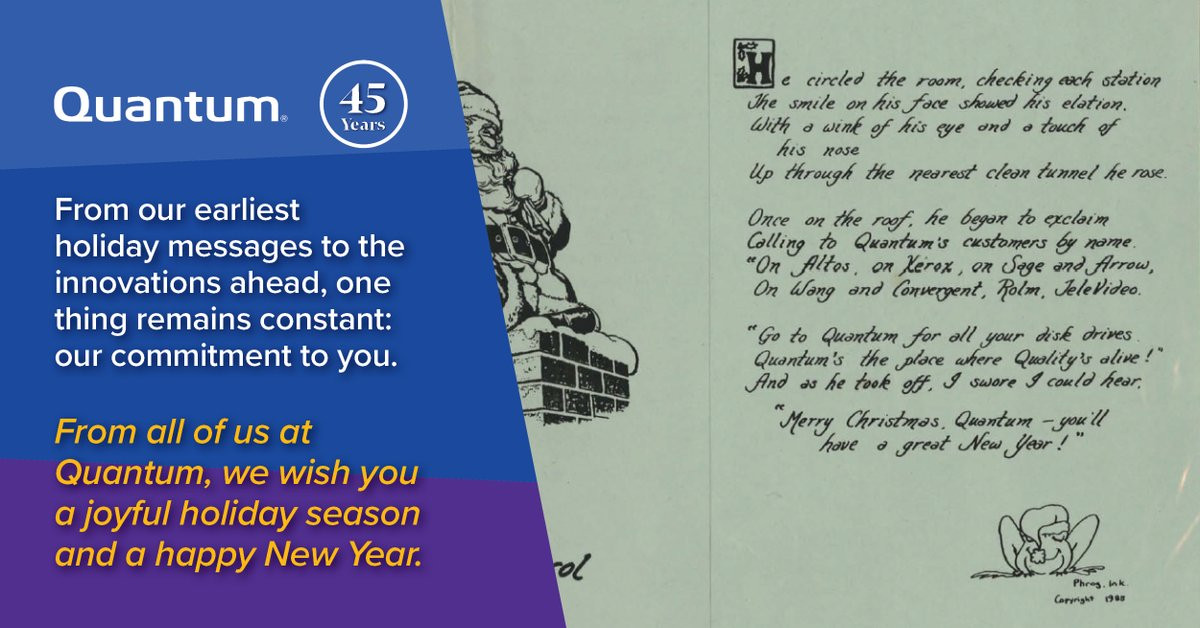 Quantum®
45
Years
From our earliest
holiday messages to the
innovations ahead, one
thing remains constant:
our commitment to you.
From all of us at
Quantum, we wish you
a joyful holiday season
and a happy New Year.
rol
He circled the room, checking each station
The smile on his face showed his elation.
With a wink of his eye and a touch of
his nose
Up through the nearest clean tunnel he rose.
Once on the roof, he began to exclaim
Calling to Quantum's customers by name.
"On Altos, on Xerox, on Sage and Arrow,
On Wang and Convergent, Rolm, TeleVideo.
"Go to Quantum for all your disk drives.
Quantum's the place where Quality's alive!"
And as he took off, I swore I could hear,
"Merry Christmas, Quantum – you'll
have a great New Year!"
Phrog, Ink.
Copyright